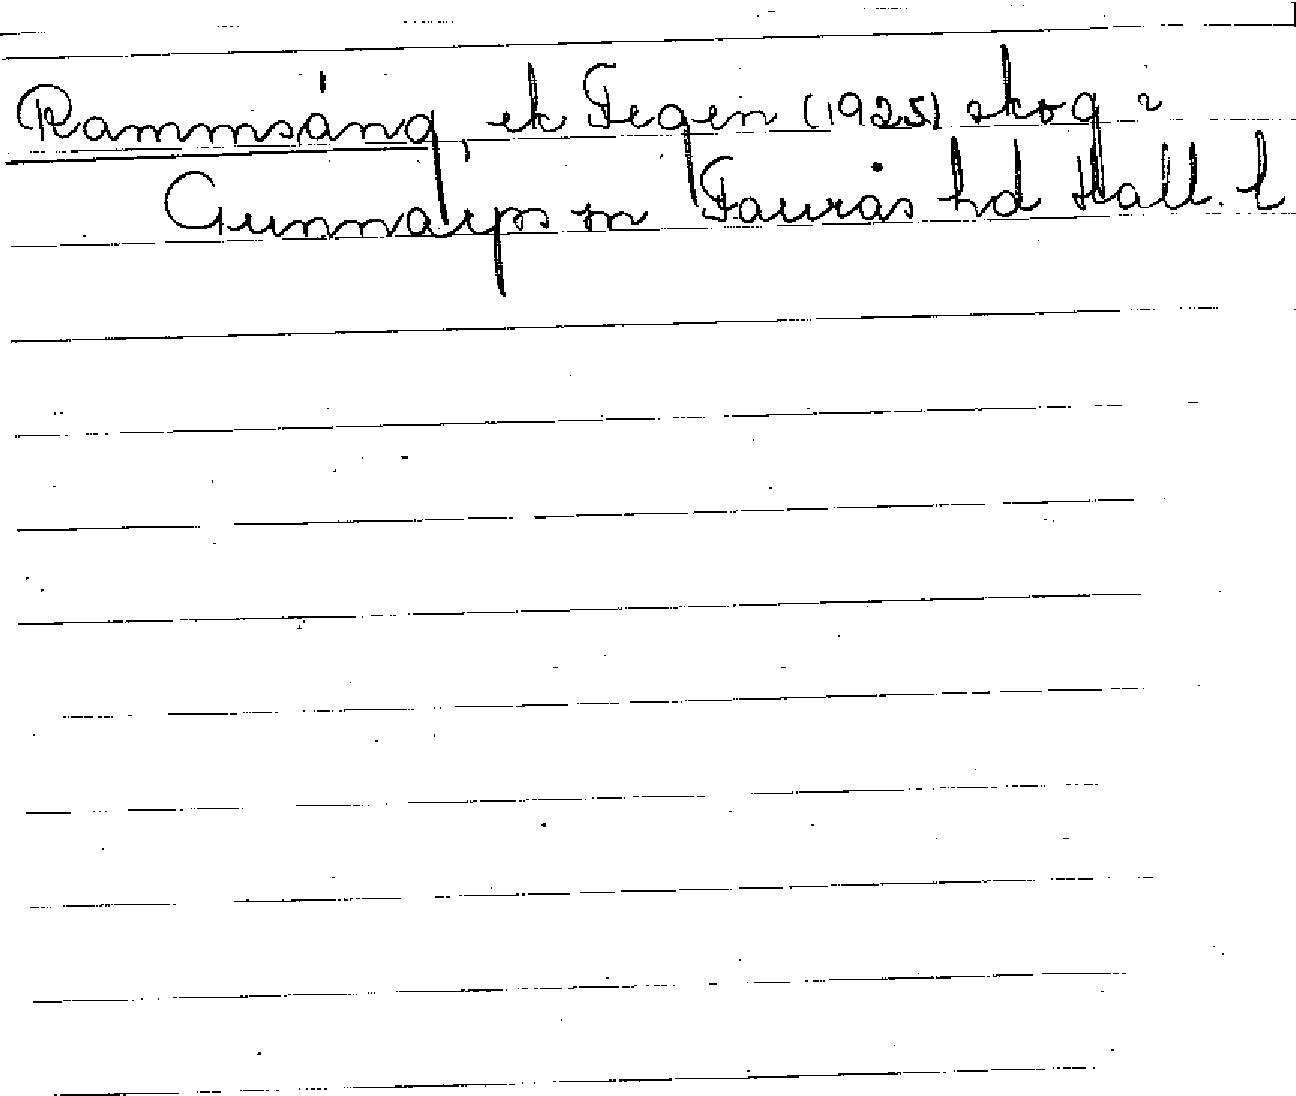 Rammsáng, ek Fegen (1925) skog i
Gunnarps sn Faurås hd Hall. l